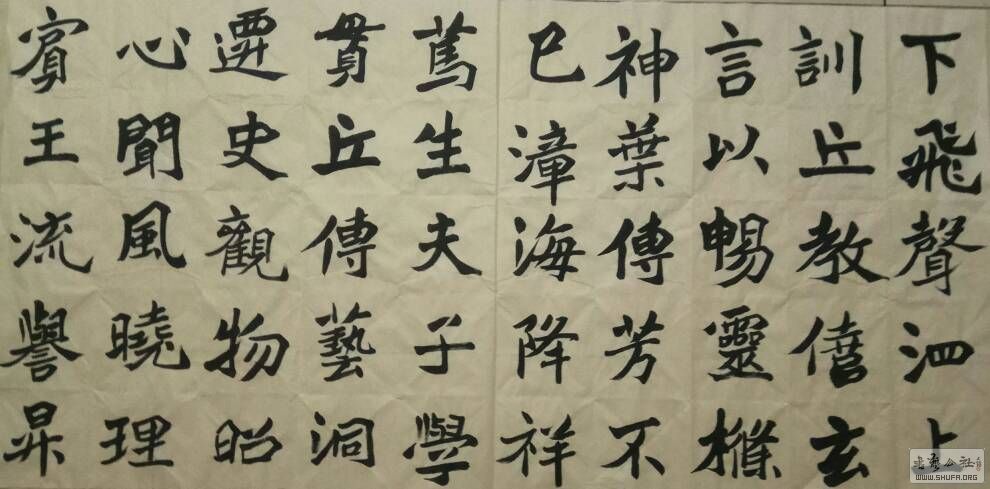 下飛聲泗上
訓丘教僖玄
言以暢靈
神葉傳芳不
已漳海降祥
篤生夫子學
貫丘傳藝洞
遷史觀物昭
心聞風曉理
賓王流譽昇
WWW.SHUFA.ORG